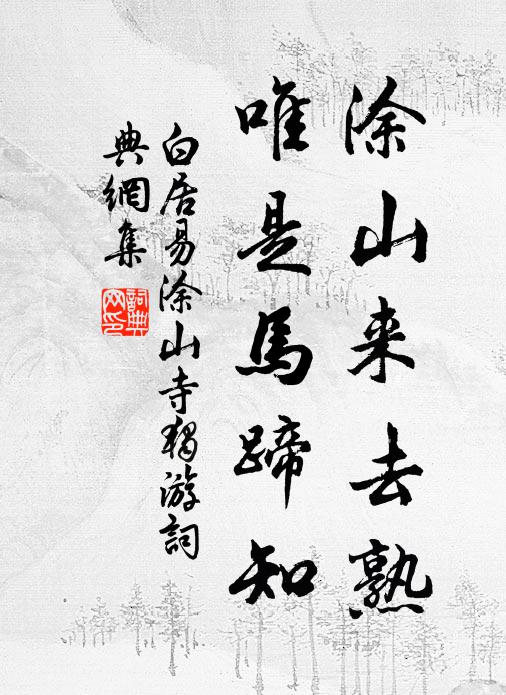 涂山来去熟
唯是馬蹄知
白居易涂山寺獨游詞
典網集
詞典
网印